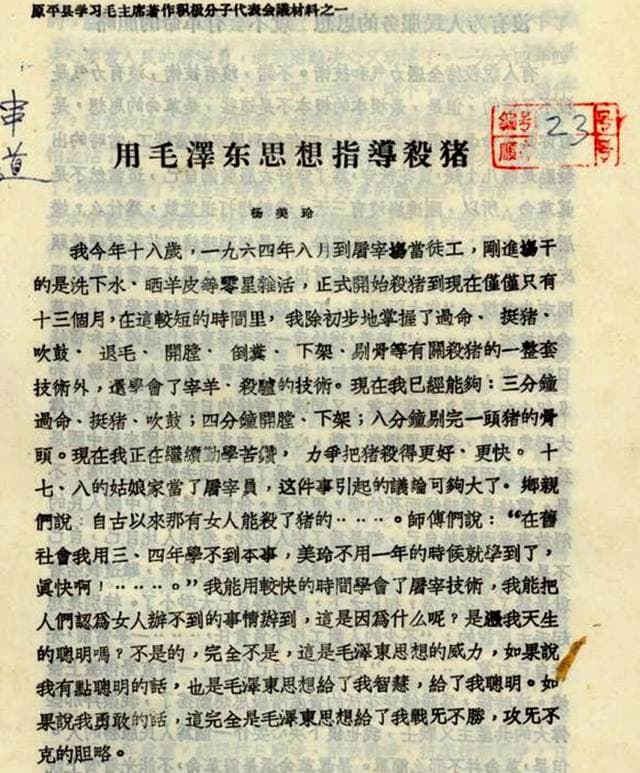 原平县学习毛主席著作积极分子代表会議材料之一
串道
编号
23
号
顺
号
用毛澤东思想指導殺猪
杨美玲
我今年十八歲，一九六四年八月到屠宰場當徒工，剛進場干
的是洗下水、晒羊皮等零星雜活，正式開始殺猪到現在僅僅只有
十三個月，在這較短的時間里，我除初步地掌握了過命、挺猪、
吹鼓、退毛、開膛、倒糞、下架、剔骨等有關殺猪的一整套
技術外，還學會了宰羊、殺驢的技術。現在我已經能夠：三分鐘
過命、挺猪、吹鼓；四分鐘開膛、下架；八分鐘剔完一頭猪的骨
頭。現在我正在繼續勤學苦鑽，力爭把猪殺得更好、更快。十
七、八的姑娘家當了屠宰員，这件事引起的議論可夠大了。鄉親
們說：自古以來那有女人能殺了猪的……。師傅們說：“在舊
社會我用三、四年學不到本事，美玲不用一年的時候就學到了，
眞快啊！……。”我能用較快的時間學會了屠宰技術，我能把
人們認為女人辦不到的事情辦到，這是因為什么呢？是憑我天生
的聰明嗎？不是的，完全不是，這是毛澤東思想的威力，如果說
我有點聰明的話，也是毛澤東思想給了我智慧，給了我聰明。如
果說我勇敢的話，這完全是毛澤東思想給了我戰旡不勝，攻旡不
克的胆略。